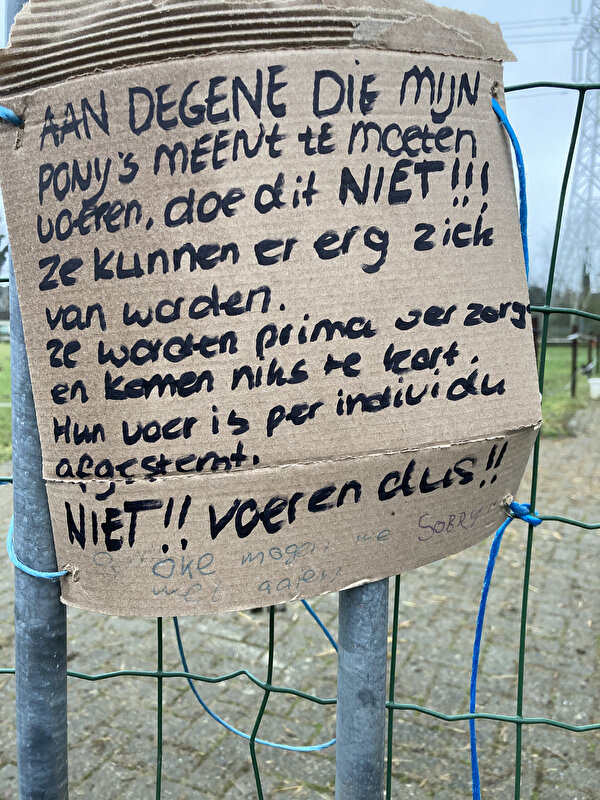 AAN DEGENE DIE MIJN
PONY'S MEENT TE MOETEN
VOEREN, doe dit NIET!!!
Ze kunnen er erg ziek
van worden.
Ze worden prima verzorg
en komen niks te kort.
Hun voer is per individu
afgestemt.
NIET!! voeren dus!!
oke mogen we SORRY!
wel aaien